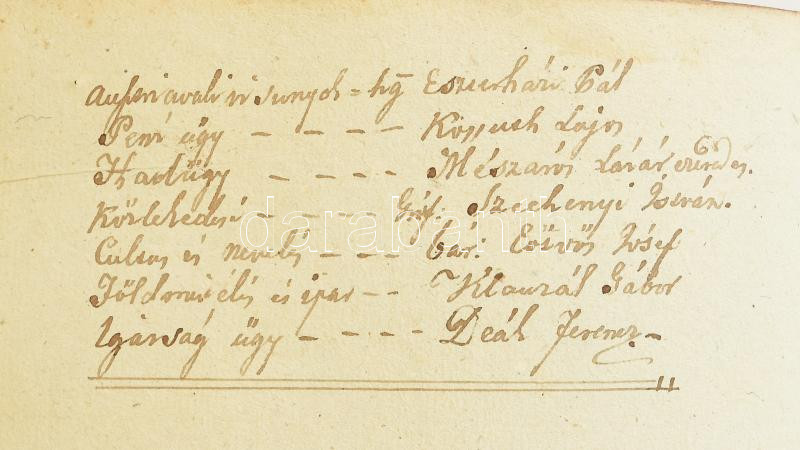 hg Eszterhári Pál
Penz ügy – – – – Kossuth Lajos
Hadügy – – – – Mészáros Lázár ezredes.
Közlekedési – – – – Gróf. Szechenyi István.
Cultus és nevelés – – – bár: Eötvös Jósef
Földmivelés és ipar – – Klauzál Gábor
Igazság ügy – – – – Deák Ferencz –
darabanth